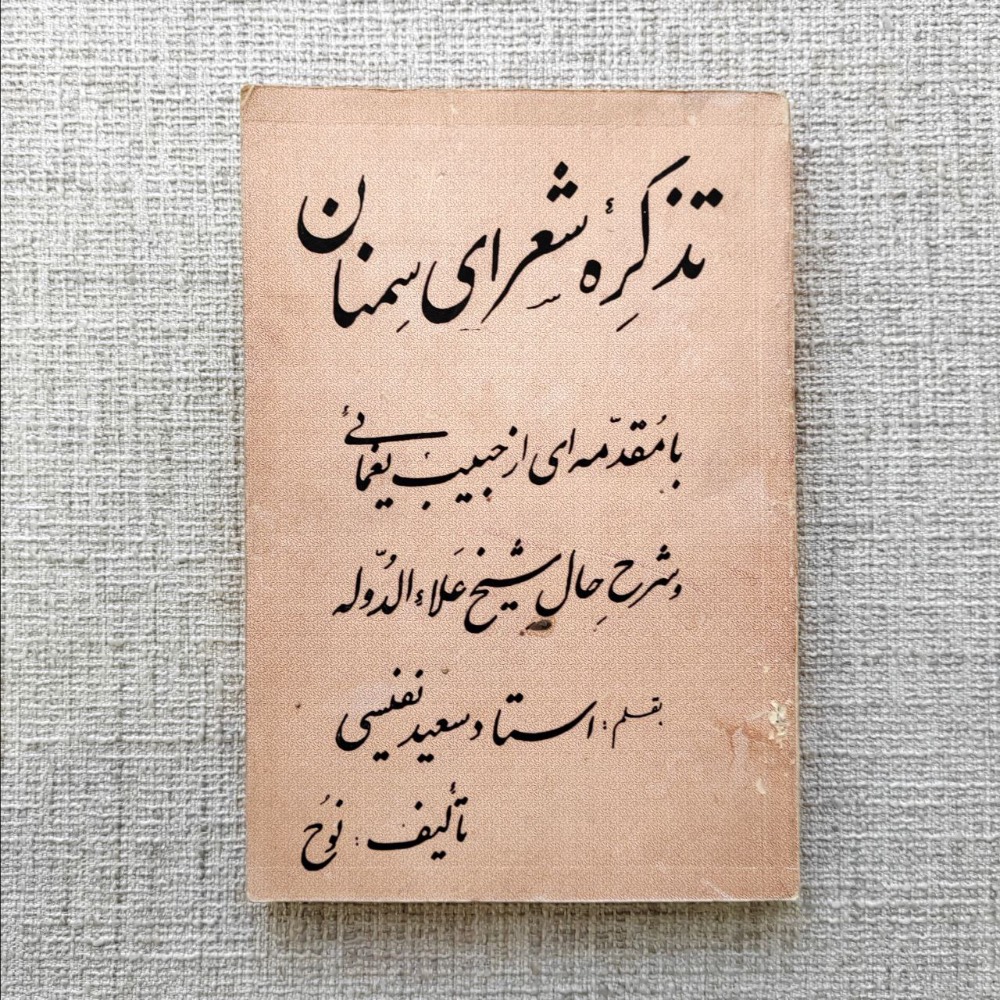 تذکرهٔ شعرای سمنان
با مُقدّمه ای از حبیب یغمائی
و شرح حال شیخ عَلاءالدُّوله
بقلم : استاد سعید نفیسی
تألیف : نوُح